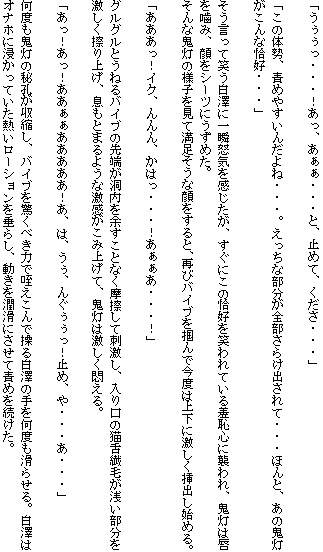 「うぅぅっ・・・！あっ、あぁぁ・・・と、止めて、くださ・・・」
「この体勢、責めやすいんだよね・・・。えっちな部分が全部さらけ出されて・・・ほんと、あの鬼灯
がこんな恰好・・・」
そう言って笑う白澤に一瞬怒気を感じたが、すぐにこの恰好を笑われている羞恥心に襲われ、鬼灯は唇
を噛み、顔をシーツにうずめた。
そんな鬼灯の様子を見て満足そうな顔をすると、再びバイブを掴んで今度は上下に激しく挿出し始める。
「あああっ！イク、んんん、かはっ・・・！あぁぁあ・・・！」
グルグルとうねるバイブの先端が洞内を余すことなく摩擦して刺激し、入り口の猫舌繊毛が浅い部分を
激しく擦り上げ、息もとまるような激感がこみ上げて、鬼灯は激しく悶える。
「あっ！あっ！ああぁぁあああああ！あ、は、うぅ、んぐぅぅっ！止め、や・・・あ・・・」
何度も鬼灯の秘孔が収縮し、バイブを驚くべき力で咥えこんで操る白澤の手を何度も滑らせる。白澤は
オナホに浸かっていた熱いローションを垂らし、動きを潤滑にさせて責めを続けた。